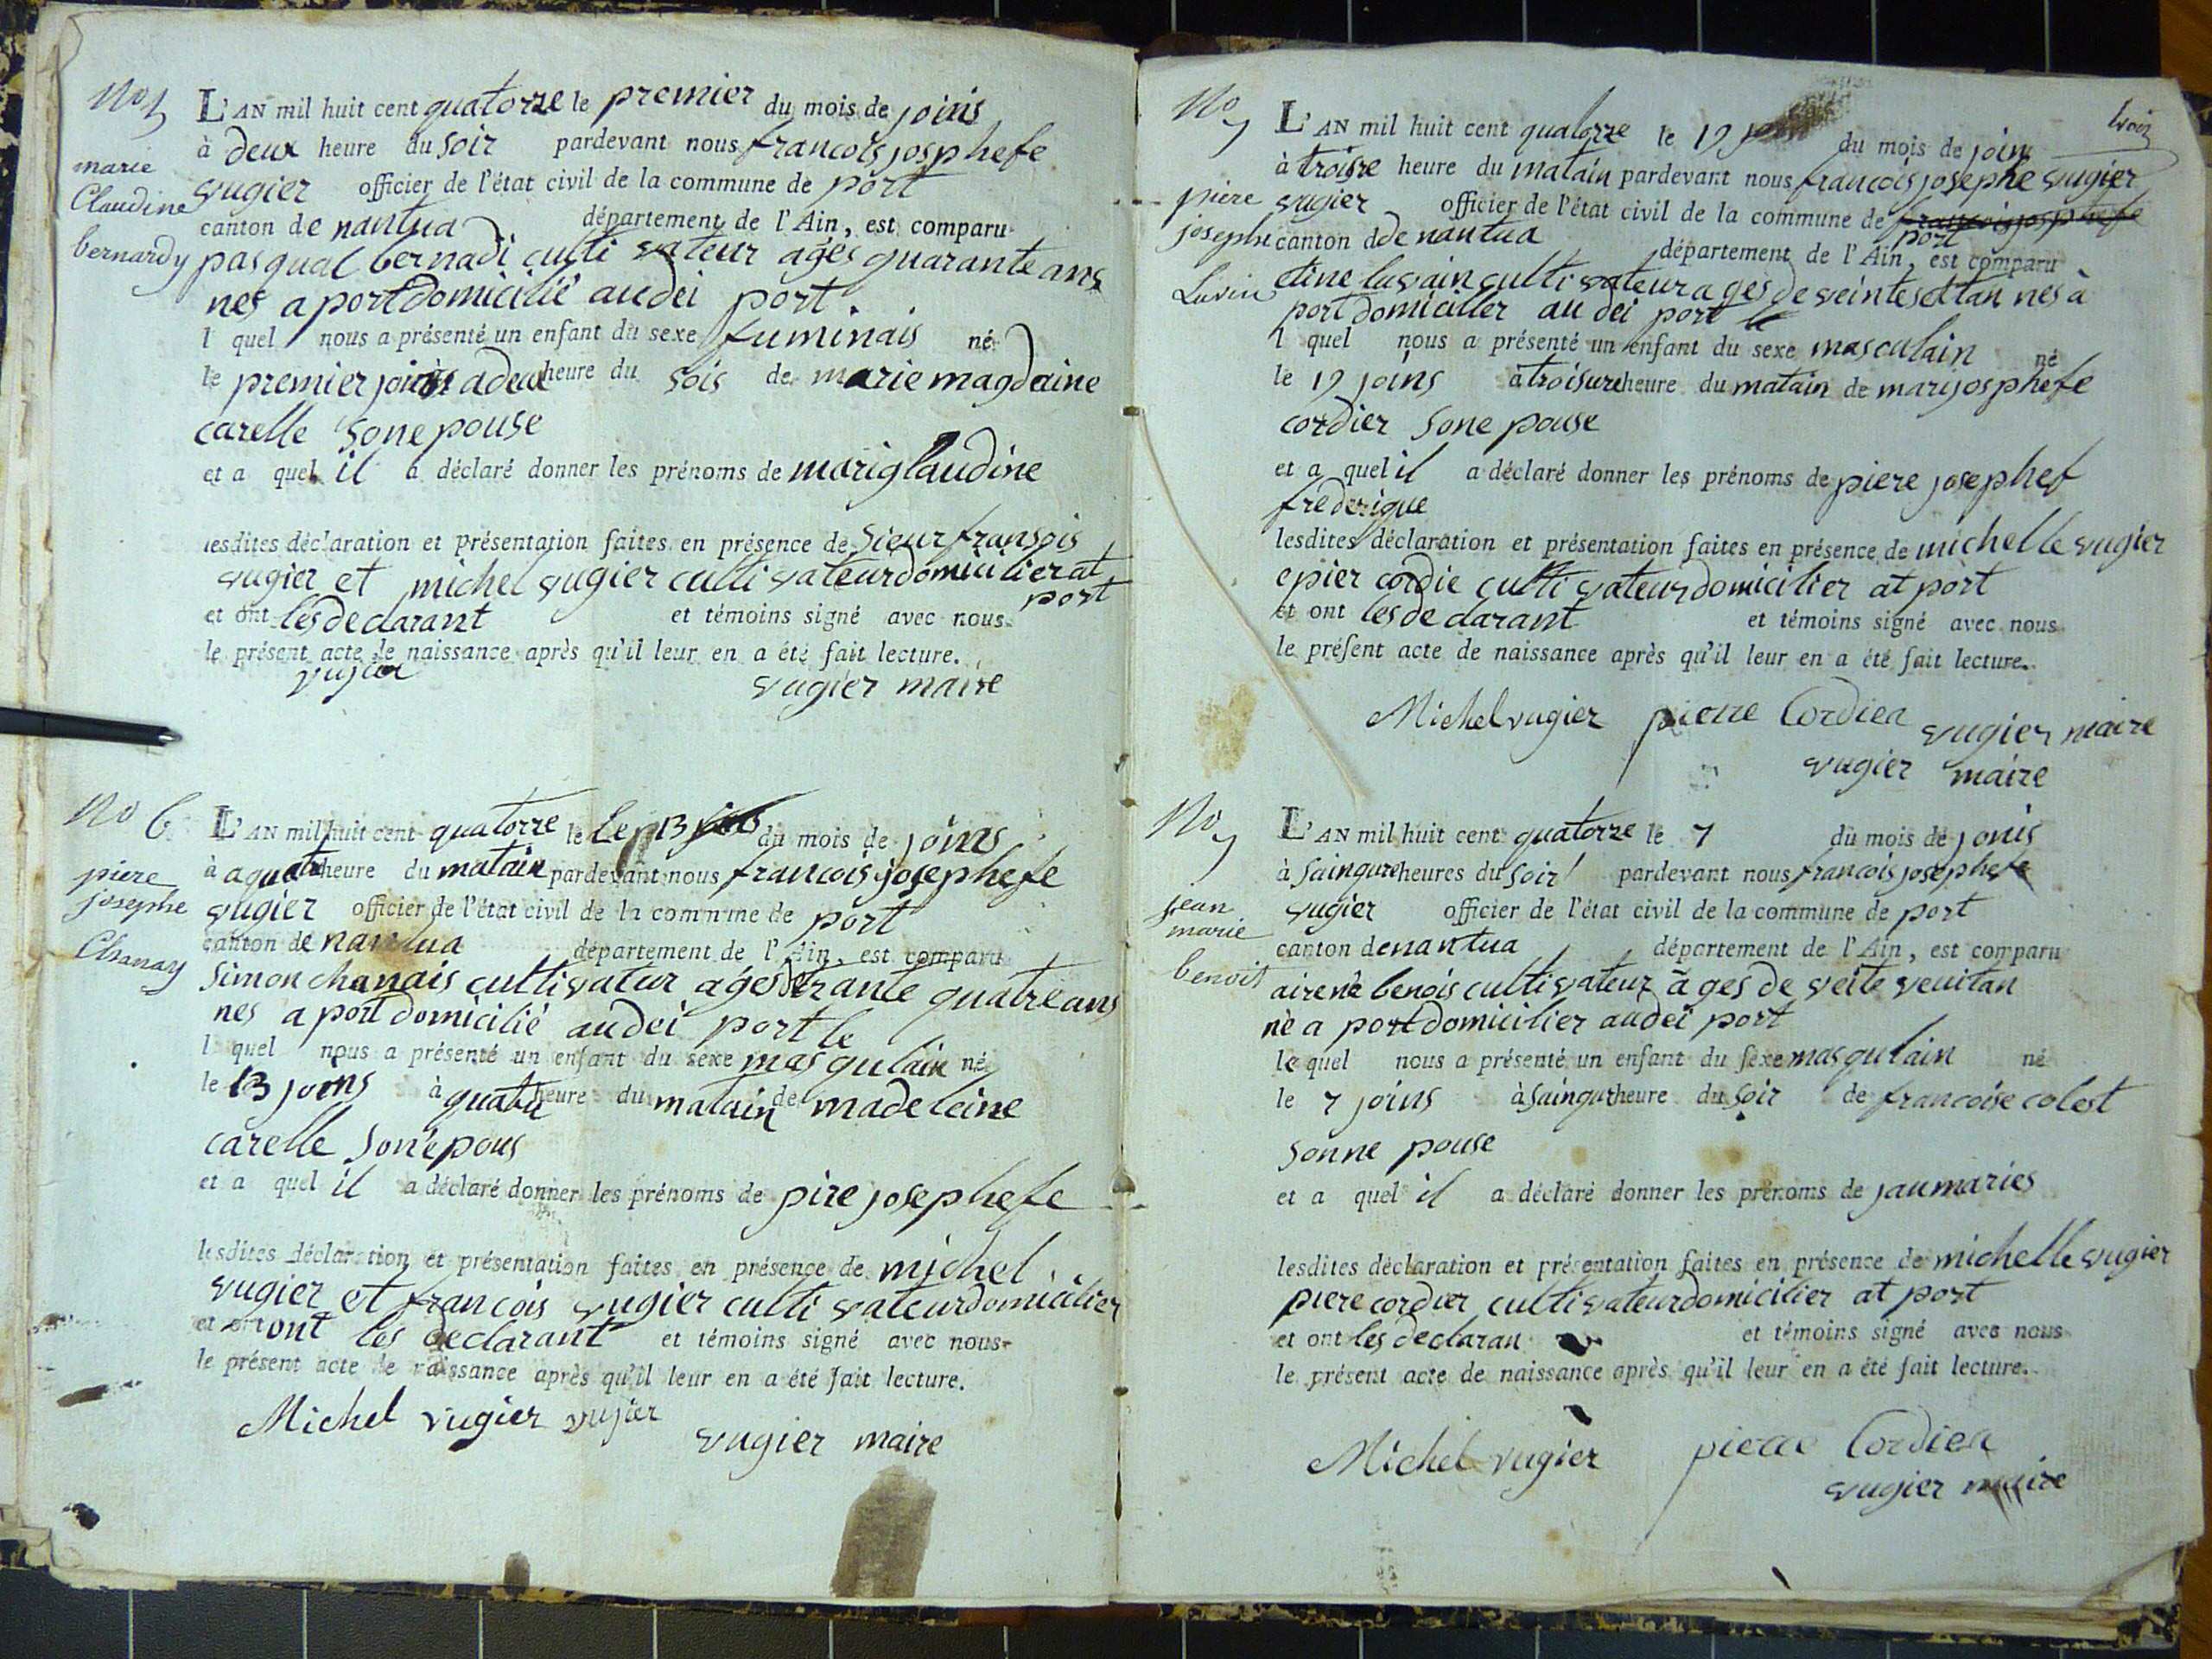 No 5
marie
Claudine
bernardy
L'AN mil huit cent quatorze le premier du mois de joins
à deux heure du soir pardevant nous francois josphefe
vugier officier de l'état civil de la commune de port
canton de nantua département de l'Ain, est comparu
pasqual bernadi culti vateur ages quarante ans
nes a port domicilié au dei port
l quel nous a présenté un enfant du sexe fuminais né
le premier joins a deux heure du sois de marie magdaine
carelle son epouse
et a quel il a déclaré donner les prénoms de mariglaudine
lesdites déclaration et présentation faites en présence de Sieur fransois
vugier et michel vugier culti vateur domicilier at
port
et ont les declarant et témoins signé avec nous
le présent acte de naissance après qu'il leur en a été fait lecture.
vujier vugier maire
No 6
piere
josephe
Chanay
L'AN mil huit cent quatorze le le 13 du mois de joins
à a quatre heure du matain pardevant nous francois josephefe
vugier officier de l'état civil de la commune de port
canton de nantua département de l'Ain, est comparu
Simon chanais cultivatur ages trante quatre ans
nes a port domicilié au dei port le
l quel nous a présenté un enfant du sexe masqulain né
le 13 joins à quatre heure du matain de madeleine
carelle son epous
et a quel il a déclaré donner les prénoms de pire josephefe
lesdites déclaration et présentation faites en présence de michel
vugier et francois vugier culti vateur domicilier
et ont ont les declarant et témoins signé avec nous
le présent acte de naissance après qu'il leur en a été fait lecture.
Michel vugier vujier
vugier maire
No 7
piere
josephe
Luvin
L'AN mil huit cent quatorze le 19 du mois de joins
à troise heure du matain pardevant nous francois josephe vugier
vugier officier de l'état civil de la commune de francois josphefe
port
canton de de nantua département de l'Ain, est comparu
etine luvain culti vateur ages de veinte set tan nes à
port domicilier au dei port le
l quel nous a présenté un enfant du sexe masculain né
le 19 joins à troisure heure du matain de mari josphefe
cordier son epouse
et a quel il a déclaré donner les prénoms de piere josephef
frederique
lesdites déclaration et présentation faites en présence de michelle vugier
epier cordie culti vateur domicilier at port
et ont les declarant et témoins signé avec nous
le présent acte de naissance après qu'il leur en a été fait lecture.
Michel vugier pierre Cordier vugier maire
vugier maire
No 7
jean
marie
benoit
L'AN mil huit cent quatorze le 7 du mois de jonis
à sainqure heures du soir pardevant nous francois josephefe
vugier officier de l'état civil de la commune de port
canton de nantua département de l'Ain, est comparu
airenè benois culti vateur ages de veite veuitan
nè a port domicilier au dei port
le quel nous a présenté un enfant du sexe masqulain né
le 7 joins à sainqur heure du soir de francoise colest
sonne pouse
et a quel il a déclaré donner les prénoms de jaumaries
lesdites déclaration et présentation faites en présence de michelle vugier
piere cordier culti vateur domicilier at port
et ont les declaran et témoins signé avec nous
le présent acte de naissance après qu'il leur en a été fait lecture.
Michel vugier pierre Cordier
vugier maire